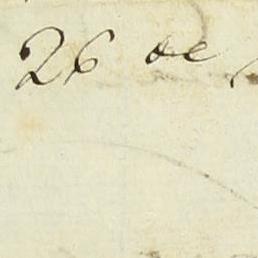 26 de